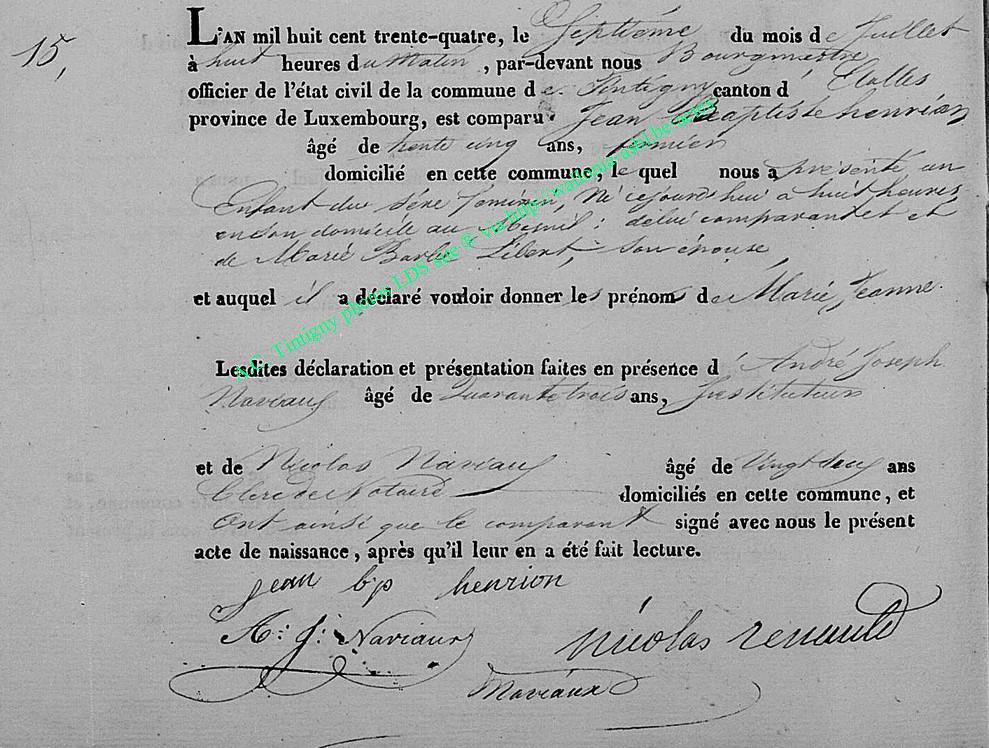 15,
L'AN mil huit cent trente-quatre, le Septième du mois de Juillet
à huit heures du Matin, par-devant nous Bourgmestre
officier de l'état civil de la commune de Tintigny canton d'Etalles
province de Luxembourg, est comparu Jean Baptiste henrion
âgé de trente cinq ans, fermier
domicilié en cette commune, le quel nous a présenté un
Enfant du séxe féminin, Né cejourd'hui a huit heures
en son domicile au Mesnil; délui comparant et
de Marie Barbe Libert, son épouse,
et auquel il a déclaré vouloir donner les prénoms de Marie Jeanne.
Lesdites déclaration et présentation faites en présence d'André Joseph
Naviaux âgé de Quarante trois ans, Instituteur
et de Nicolas Naviaux âgé de Vingt deux ans
Clerc de Notaire domiciliés en cette commune, et
Ont ainsi que le comparant signé avec nous le présent
acte de naissance, après qu'il leur en a été fait lecture.
jean bp henrion
A: J: Naviaux
nicolas renauld
Naviaux
A.C. Tintigny photos LDS via http://wallonia-asbl.be